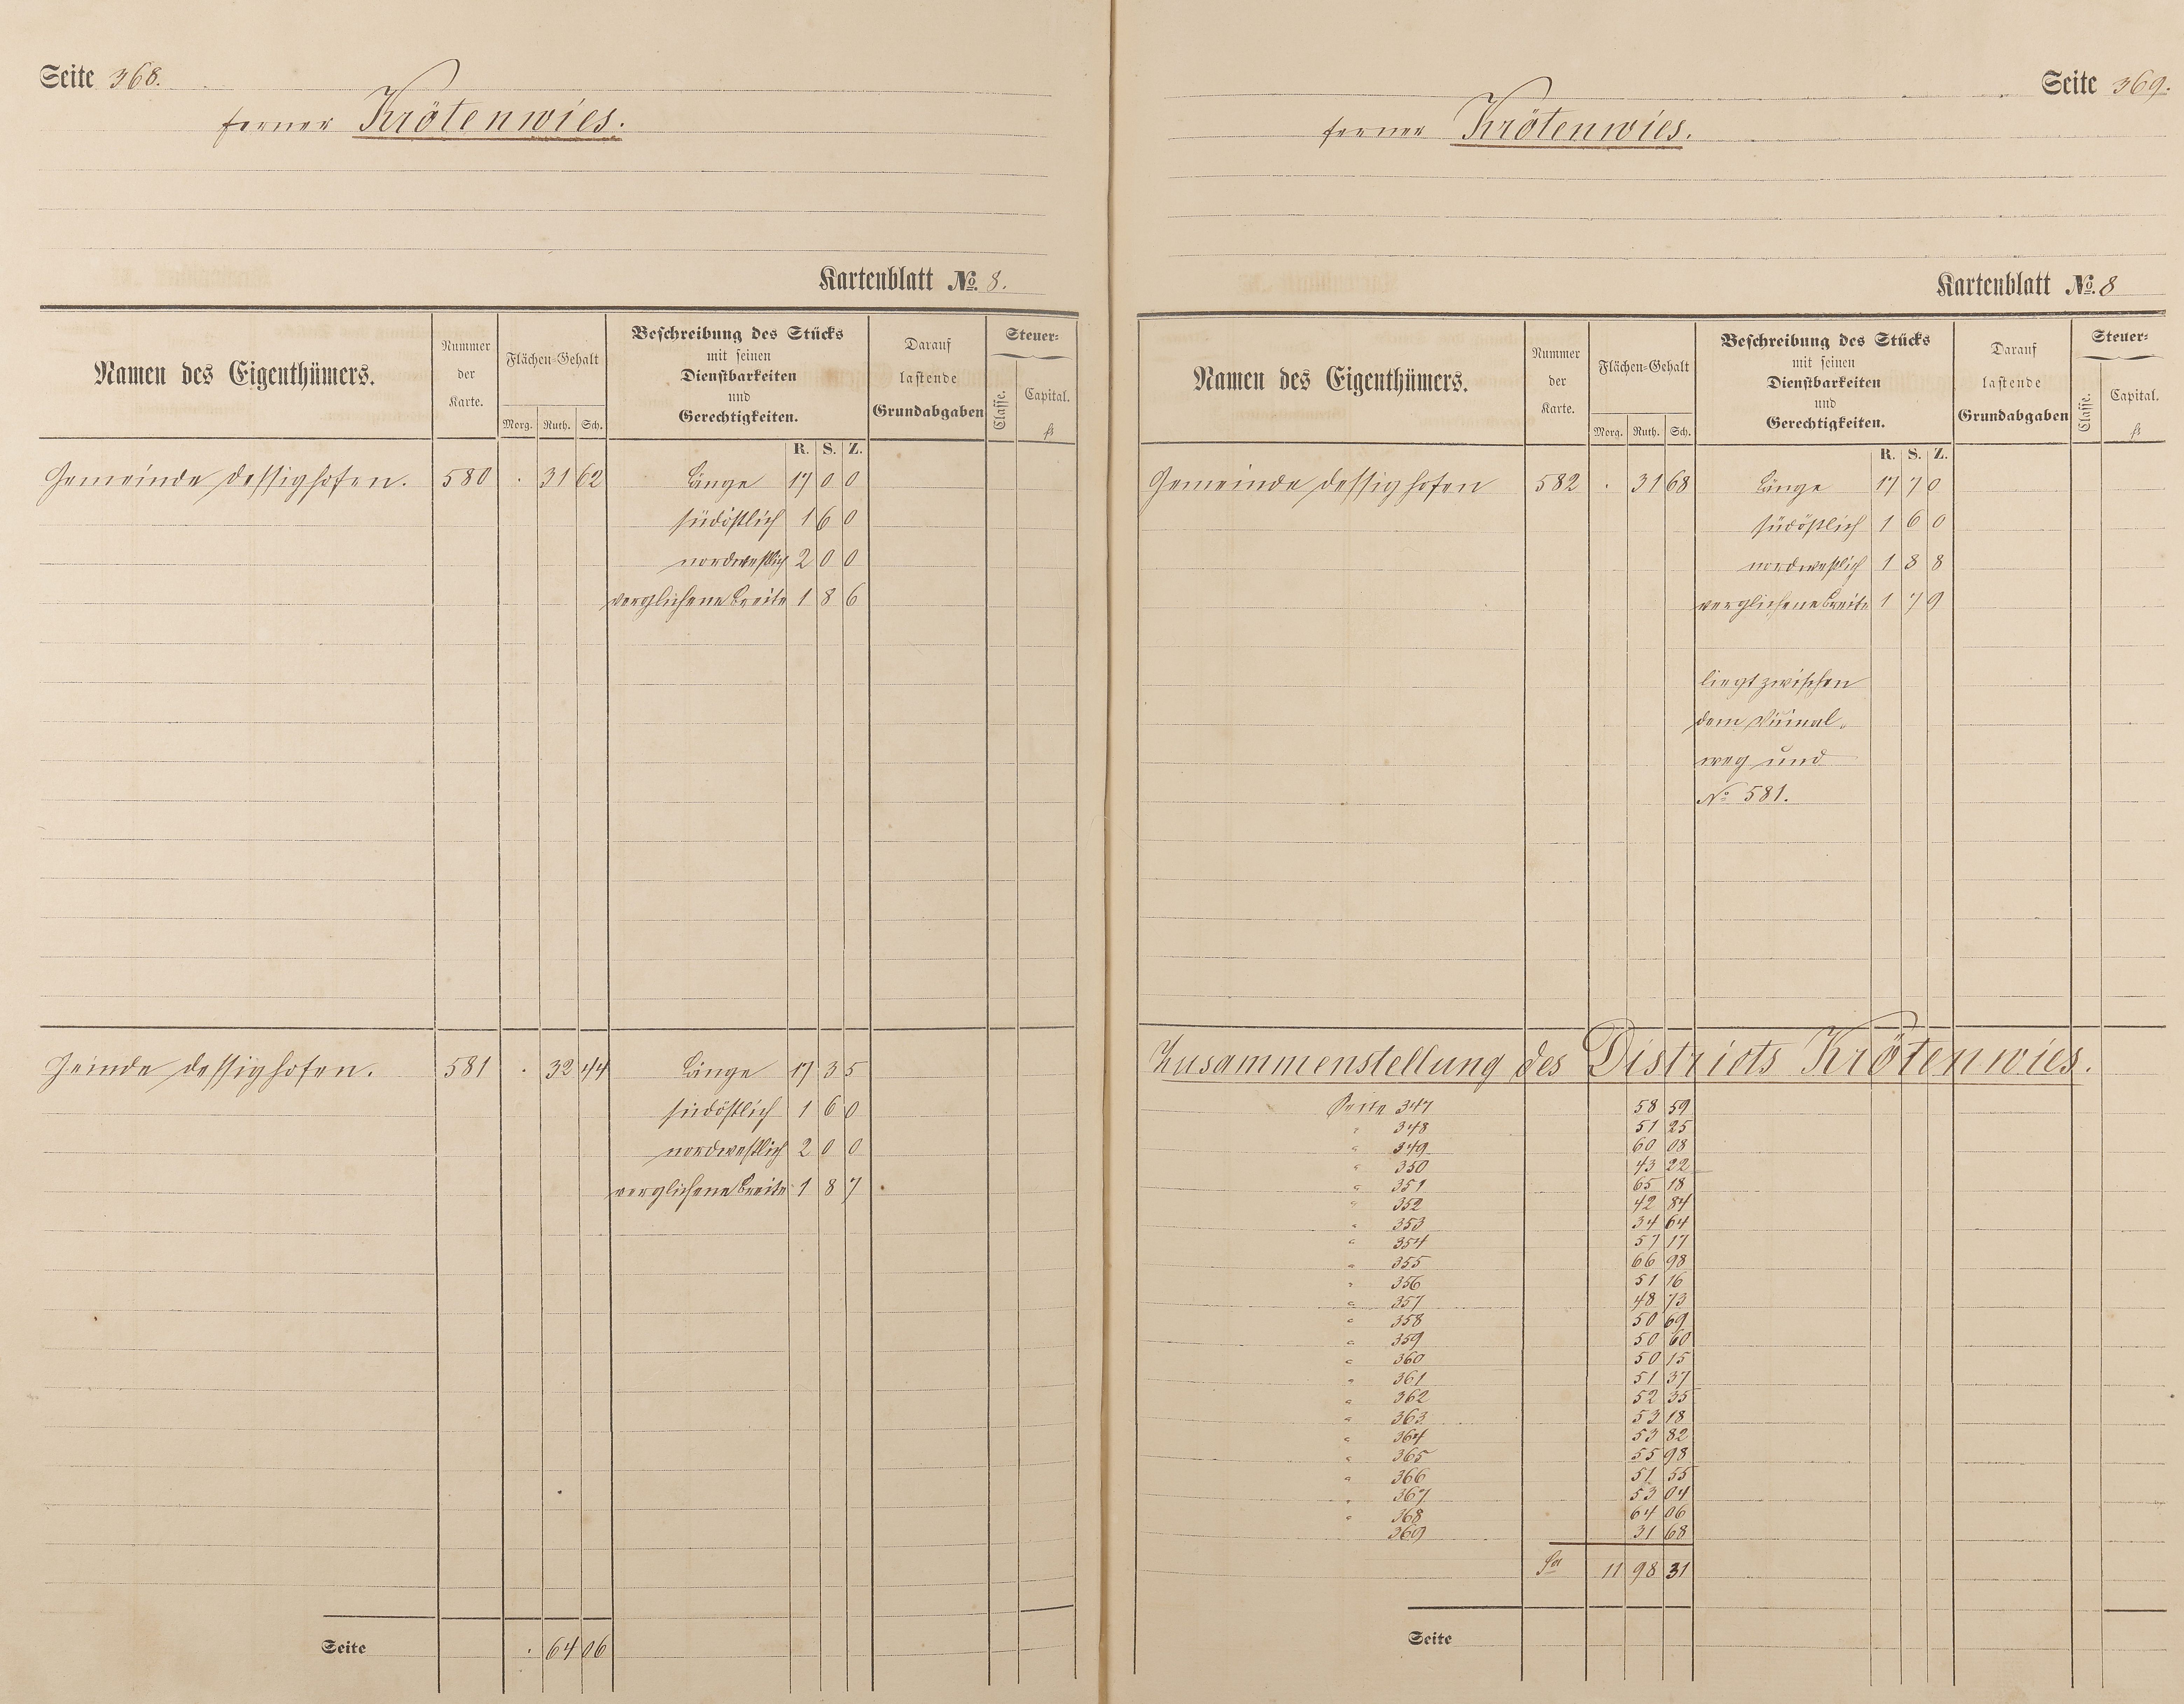 Seite 368.
ferner Krötenwies.
Kartenblatt No. 8.
Namen des Eigenthümers.
Nummer der Karte.
Flächen-Gehalt
Morg. Ruth. Sch.
Beschreibung des Stücks
mit seinen
Dienstbarkeiten
und
Gerechtigkeiten.
Darauf
lastende
Grundabgaben
Steuer-
Classe. Capital.
fl
R. S. Z.
Gemeinde Dessighofen. 580 . 31 62 Länge 17 0 0
südöstlich 1 6 0
nordwestlich 2 0 0
verglichene Breite 1 8 6
Geinde Dessighofen. 581 . 32 44 Länge 17 3 5
südöstlich 1 6 0
nordwestlich 2 0 0
verglichene Breite 1 8 7
Seite . 64 06
Seite 369.
ferner Krötenwies.
Kartenblatt No. 8
Namen des Eigenthümers.
Nummer der Karte.
Flächen-Gehalt
Morg. Ruth. Sch.
Beschreibung des Stücks
mit seinen
Dienstbarkeiten
und
Gerechtigkeiten.
Darauf
lastende
Grundabgaben
Steuer-
Classe. Capital.
fl
R. S. Z.
Gemeinde Dessighofen 582 . 31 68 Länge 17 7 0
südöstlich 1 6 0
nordwestlich 1 8 8
verglichene Breite 1 7 9
liegt zwischen
dem Vicinal-
weg und
No 581.
Zusammenstellung des Districts Krötenwies.
Seite 347 58 59
" 348 51 25
" 349 60 08
" 350 43 22
" 351 65 18
" 352 42 84
" 353 34 64
" 354 57 17
" 355 66 98
" 356 51 16
" 357 48 73
" 358 50 69
" 359 50 60
" 360 50 15
" 361 51 37
" 362 52 35
" 363 53 18
" 364 53 82
" 365 55 98
" 366 51 55
" 367 53 04
" 368 64 06
369 31 68
Sa 11 98 31
Seite